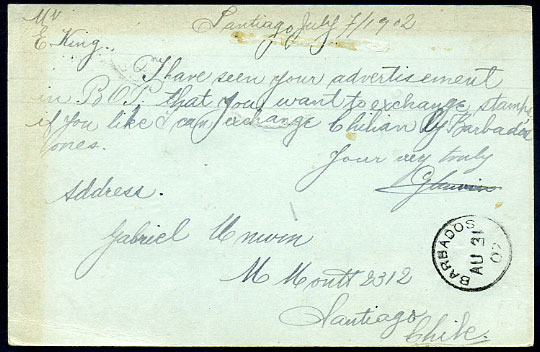 Santiago July 7/1902
Mr
E. King.
I have seen your advertisement
in B.O.P. that you want to exchange stamps
if you like I can exchange Chilian by Barbados
ones.
Your very truly
Address.
Gabriel Unwin
M Montt 2312
Santiago
Chile.
BARBADOS
AU 31
02